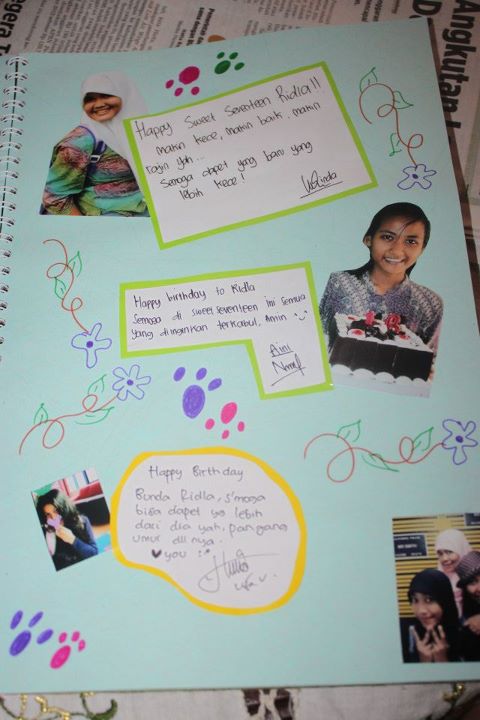 Angkutan
Happy Sweet Seventeen Ridla!!
makin kece, makin baik, makin
rajin yah...
Semoga dapet yang baru yang
lebih kece!
Happy birthday to Ridla
Semoga di sweet seventeen ini semua
yang diinginkan terkabul, Amin
Aini
Happy Birthday
Bunda Ridla, s'moga
bisa dapet yg lebih
dari dia yah, panjang
umur dll nya.
you